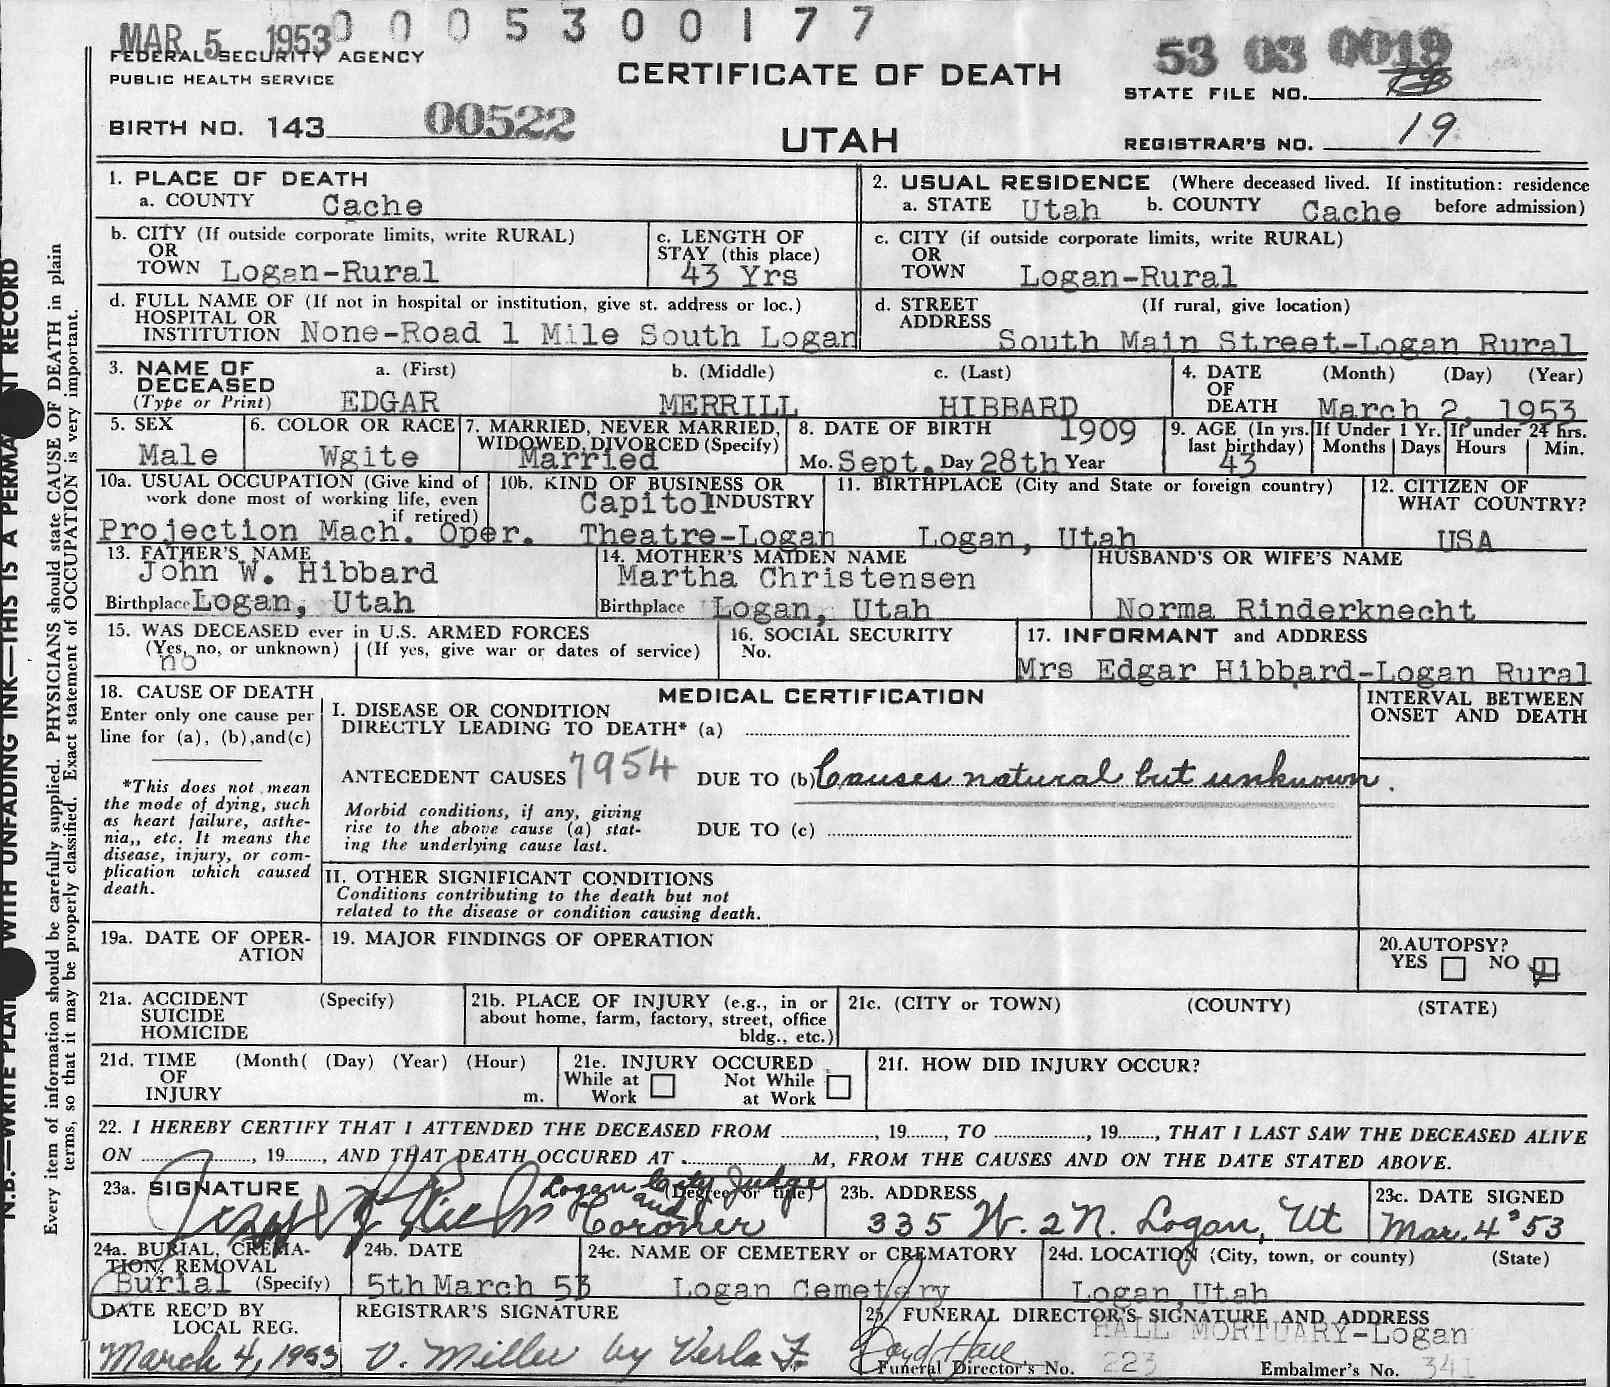 MAR 5 1953
0 0 0 5 3 0 0 1 7 7
53 03 0019
FEDERAL SECURITY AGENCY
PUBLIC HEALTH SERVICE
CERTIFICATE OF DEATH
STATE FILE NO.
BIRTH NO. 143 00522
UTAH
REGISTRAR'S NO. 19
1. PLACE OF DEATH
a. COUNTY Cache
2. USUAL RESIDENCE (Where deceased lived. If institution: residence before admission)
a. STATE Utah b. COUNTY Cache
b. CITY (If outside corporate limits, write RURAL)
OR
TOWN Logan-Rural
c. LENGTH OF
STAY (this place)
43 Yrs
c. CITY (if outside corporate limits, write RURAL)
OR
TOWN Logan-Rural
d. FULL NAME OF (If not in hospital or institution, give st. address or loc.)
HOSPITAL OR
INSTITUTION None-Road 1 Mile South Logan
d. STREET (If rural, give location)
ADDRESS South Main Street-Logan Rural
3. NAME OF
DECEASED
(Type or Print)
a. (First) b. (Middle) c. (Last)
EDGAR MERRILL HIBBARD
4. DATE (Month) (Day) (Year)
OF
DEATH March 2, 1953
5. SEX
Male
6. COLOR OR RACE
Wgite
7. MARRIED, NEVER MARRIED,
WIDOWED, DIVORCED (Specify)
Married
8. DATE OF BIRTH 1909
Mo. Sept. Day 28th Year
9. AGE (In yrs.
last birthday)
43
If Under 1 Yr.
Months Days
If under 24 hrs.
Hours Min.
10a. USUAL OCCUPATION (Give kind of
work done most of working life, even
if retired)
Projection Mach. Oper.
10b. KIND OF BUSINESS OR
INDUSTRY
Capitol
Theatre-Logan
11. BIRTHPLACE (City and State or foreign country)
Logan, Utah
12. CITIZEN OF
WHAT COUNTRY?
USA
13. FATHER'S NAME
John W. Hibbard
Birthplace Logan, Utah
14. MOTHER'S MAIDEN NAME
Martha Christensen
Birthplace Logan, Utah
HUSBAND'S OR WIFE'S NAME
Norma Rinderknecht
15. WAS DECEASED ever in U.S. ARMED FORCES
(Yes, no, or unknown) (If yes, give war or dates of service)
no
16. SOCIAL SECURITY
No.
17. INFORMANT and ADDRESS
Mrs Edgar Hibbard-Logan Rural
18. CAUSE OF DEATH
Enter only one cause per
line for (a), (b),and(c)
*This does not mean
the mode of dying, such
as heart failure, asthe-
nia,, etc. It means the
disease, injury, or com-
plication which caused
death.
MEDICAL CERTIFICATION
INTERVAL BETWEEN
ONSET AND DEATH
I. DISEASE OR CONDITION
DIRECTLY LEADING TO DEATH* (a)
ANTECEDENT CAUSES 7954 DUE TO (b) Causes natural but unknown.
Morbid conditions, if any, giving
rise to the above cause (a) stat-
ing the underlying cause last.
DUE TO (c)
II. OTHER SIGNIFICANT CONDITIONS
Conditions contributing to the death but not
related to the disease or condition causing death.
19a. DATE OF OPER-
ATION
19. MAJOR FINDINGS OF OPERATION
20.AUTOPSY?
YES NO
21a. ACCIDENT (Specify)
SUICIDE
HOMICIDE
21b. PLACE OF INJURY (e.g., in or
about home, farm, factory, street, office
bldg., etc.)
21c. (CITY or TOWN) (COUNTY) (STATE)
21d. TIME (Month( (Day) (Year) (Hour)
OF
INJURY m.
21e. INJURY OCCURED
While at Work Not While at Work
21f. HOW DID INJURY OCCUR?
22. I HEREBY CERTIFY THAT I ATTENDED THE DECEASED FROM ................, 19......., TO ................, 19......., THAT I LAST SAW THE DECEASED ALIVE
ON ..................., 19......., AND THAT DEATH OCCURED AT ......................M, FROM THE CAUSES AND ON THE DATE STATED ABOVE.
23a. SIGNATURE (Degree or title)
Logan City Judge
and
Coroner
23b. ADDRESS
335 W. 2 N. Logan, Ut
23c. DATE SIGNED
Mar. 4 '53
24a. BURIAL, CREMA-
TION, REMOVAL
Burial (Specify)
24b. DATE
5th March 53
24c. NAME OF CEMETERY or CREMATORY
Logan Cemetery
24d. LOCATION (City, town, or county) (State)
Logan, Utah
DATE REC'D BY
LOCAL REG.
March 4, 1953
REGISTRAR'S SIGNATURE
V. Miller by Verla F.
25. FUNERAL DIRECTOR'S SIGNATURE AND ADDRESS
HALL MORTUARY-Logan
Boyd Hall
Funeral Director's No. 223 Embalmer's No. 341
N.B.—WRITE WITH UNFADING INK—THIS IS A RECORD
Every item of information should be carefully supplied. PHYSICIANS should state CAUSE OF DEATH in plain
terms, so that it may be properly classified. Exact statement of OCCUPATION is very important.